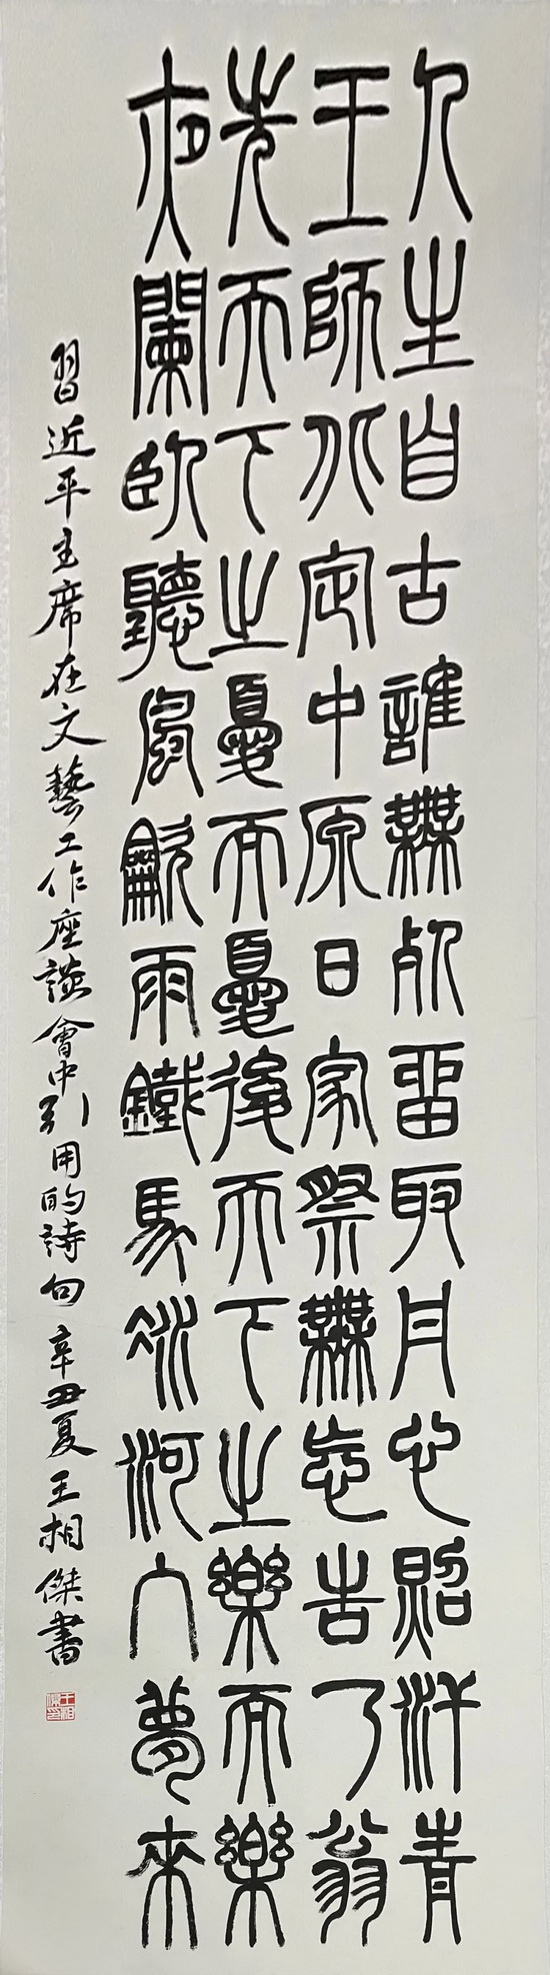 人生自古誰無死留取丹心照汗青
王師北定中原日家祭無忘告乃翁
先天下之憂而憂後天下之樂而樂
夜闌臥聽風吹雨鐵馬冰河入夢來
習近平主席在文藝工作座談會中引用的詩句辛丑夏王相傑書